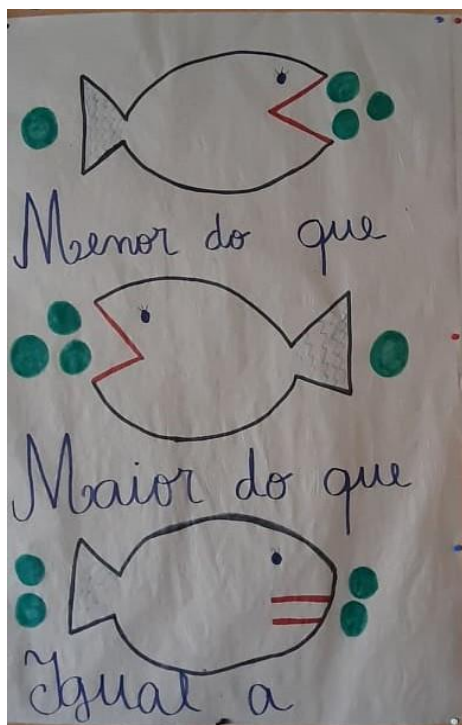 Menor do que
Maior do que
Igual a